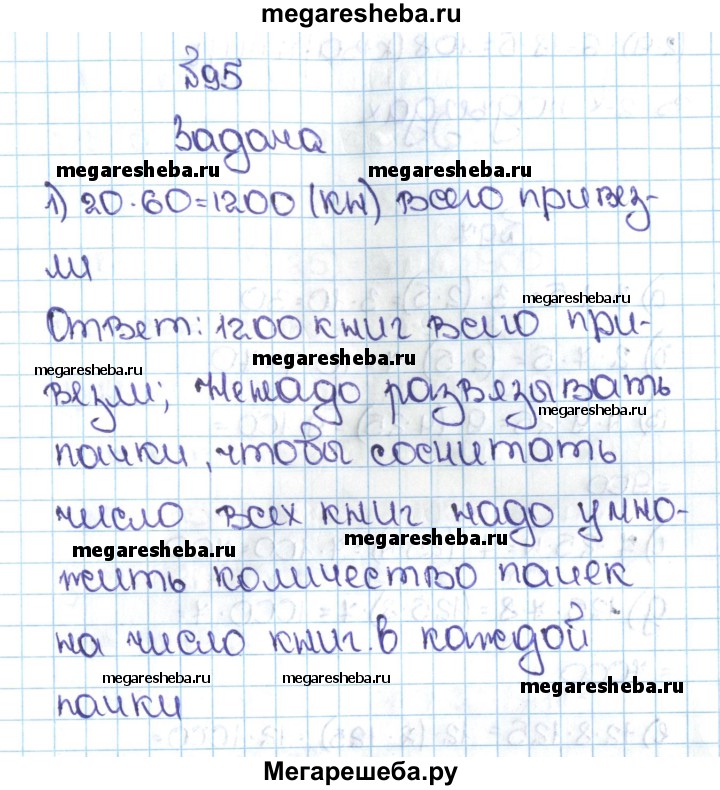 megaresheba.ru
№95
Задача
megaresheba.ru megaresheba.ru
1) 20·60=1200 (кн) всего привез-
ли
megaresheba.ru
Ответ: 1200 книг всего при-
megaresheba.ru megaresheba.ru
везли; Не надо развязывать
megaresheba.ru
пачки, чтобы сосчитать
число всех книг надо умно-
megaresheba.ru megaresheba.ru
жить количество пачек
на число книг в каждой
megaresheba.ru megaresheba.ru megaresheba.ru
пачки
Мегарешеба.ру